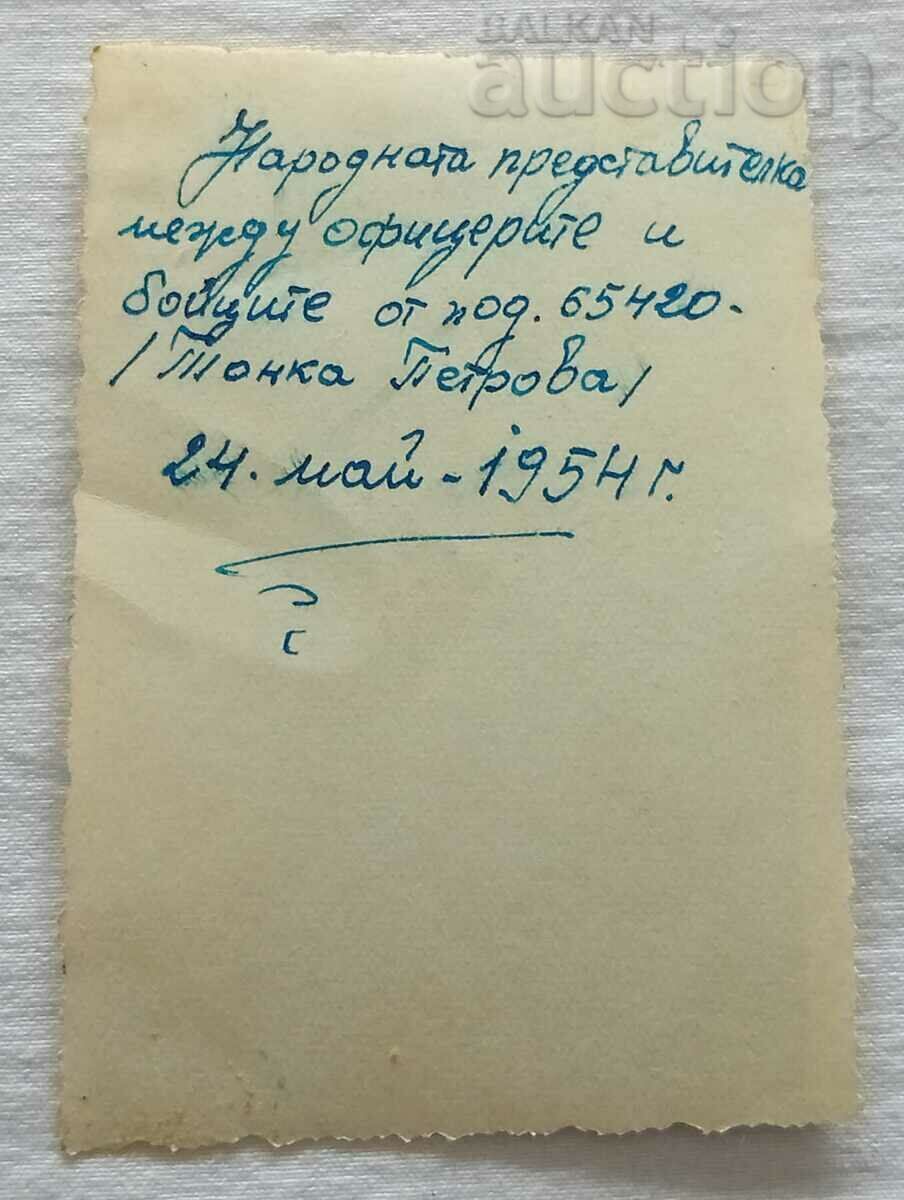 BALKAN
auction
Народната представителка
между офицерите и
бойците от под. 65420-
/Тонка Петрова/
24. май - 1954 г.